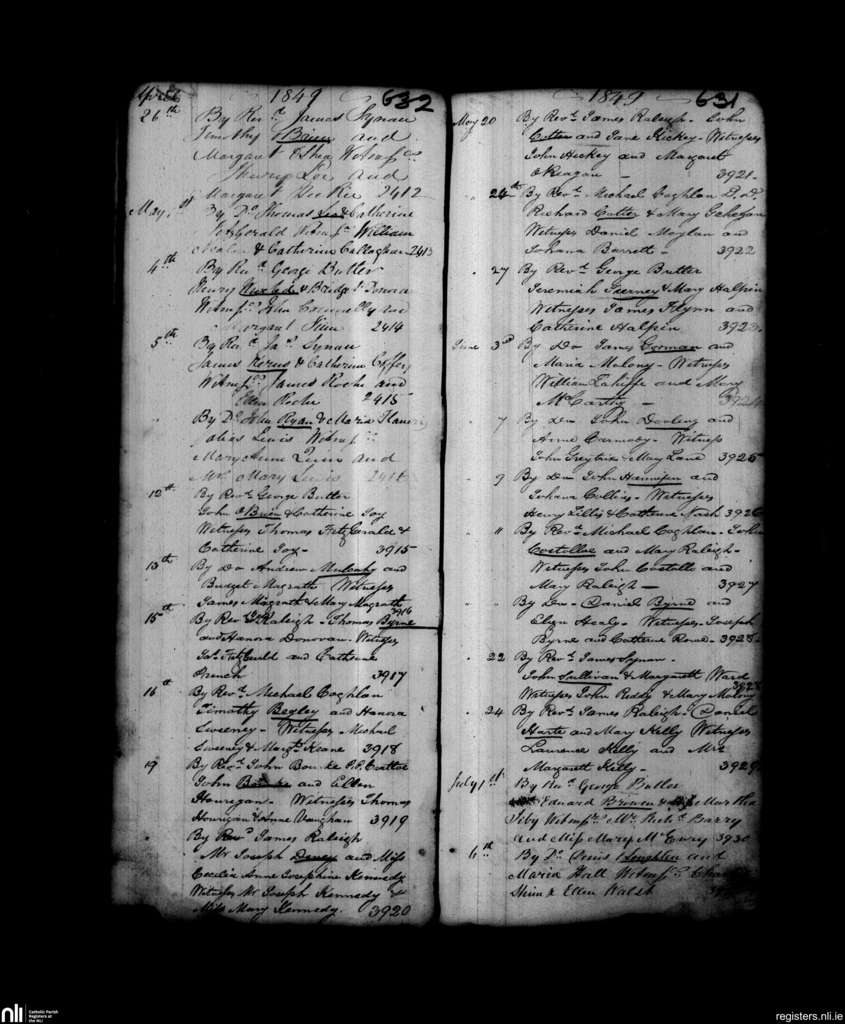 April 1849 632
26th By Revd James Synan
Timothy Brien and
Margaret Shea Witnesses
and
Margaret 2412
May 1st By Do Thomas Lee & Catherine
Fitzgerald Witnesses William
& Catherine Callaghan 2413
4th By Revd George Butler
Henry & Bridget Donora
Witnesses John Connelly and
Margaret 2414
5th By Revd Jas Synan
James & Catherine
Witnesses James Roche and
Ellen Roche 2415
" By Do John Ryan & Maria
alias Lewis Witnesses
Mary Anne Quin and
Mrs Mary Lewis 2416
12th By Revd George Butler
John OBrien & Catherine Fox
Witnesses Thomas FitzGerald &
Catherine Fox - 3915
13th By Do Andrew Mulcahy and
Bridget Magrath Witnesses
James Magrath & Mary Magrath
3916
15th By Rev Raleigh - Thomas Byrne
and Hanora Donovan - Witnesses
Jas FitzGerald and Catherine
French 3917
16th By Revd Michael Coghlan
Timothy Begley and Hanora
Sweeney - Witnesses Michael
Sweeney & Margt Keane 3918
19 By Revd John Bourke P.P.
John and Ellen
Hourigan - Witnesses Thomas
Hourigan & Anne Vaughan 3919
By Revd James Raleigh
Mr Joseph and Miss
Cecilia Anne Josephine Kennedy
Witnesses Mr Joseph Kennedy &
Miss Mary Kennedy. 3920
1849 631
May 20 By Revd James Raleigh - John
Cotter and Jane Hickey - Witnesses
John Hickey and Margaret
OReagan - 3921
" 24th By Revd Michael Coghlan
Richard Cotter & Mary
Witness Daniel Moylan and
Johana Barrett - 3922
" 27 By Revd George Butler
Jeremiah Tierney & Mary Halpin
Witnesses James Flynn and
Catherine Halpin 3923.
June 3rd By Do James Gorman and
Maria Molony - Witnesses
William and Mary
McCarthy - 3924
" 7 By Do John Dowling and
Anne - Witness
John & Mary Lane 3925
" 9 By Do John Hannifen and
Johana Collins - Witnesses
Henry Lillis & Catherine Nash 3926
" 11 By Revd Michael Coghlan - John
Costelloe and Mary Raleigh -
Witnesses John Costello and
Mary Raleigh - 3927
" " By Do - Daniel Byrne and
Eliza Healy - Witnesses - Joseph
Byrne and Catherine - 3928 -
" 22 By Revd James Synan -
John Sullivan & Margarett Ward
3928
Witnesses John Reddy & Mary Molony
" 24 By Revd James Raleigh - Daniel
Harte and Mary Kelly Witnesses
Laurence Kelly and Mrs
Margaret Kelly - 3929
July 1st By Revd George Butler
Edward & Martha
Witnesses Mr Barry
and Miss Mary McEnry 3930
6th By Do Denis and
Maria Hall Witnesses
& Ellen Walsh
nli
Catholic Parish
Registers at
the NLI
registers.nli.ie